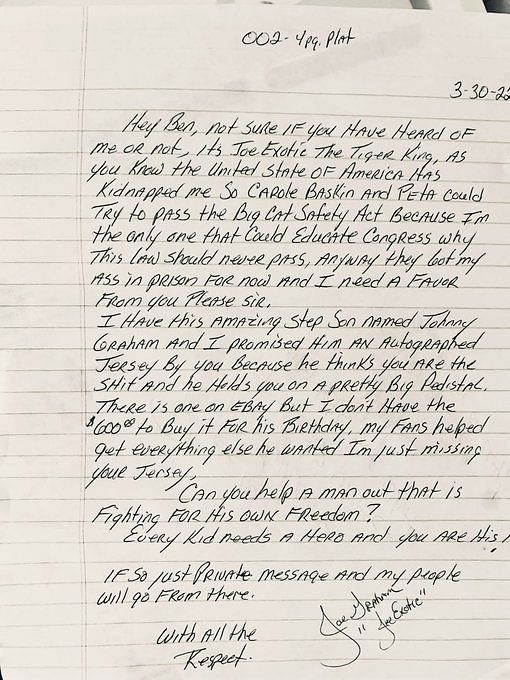 002- 4pg. Plat
3-30-22
Hey Ben, not sure if you have heard of
me or not, its Joe Exotic the Tiger King, as
you know the United State of America has
kidnapped me so Carole Baskin and Peta could
try to pass the Big Cat Safety Act because I'm
the only one that could educate Congress why
this law should never pass, anyway they got my
ass in prison for now and I need a favor
from you please sir.
I have this amazing step son named Johnny
Graham and I promised him an autographed
jersey by you because he thinks you are the
shit and he holds you on a pretty big pedistal.
There is one on ebay but I don't have the
$600.00 to buy it for his birthday, my fans helped
get everything else he wanted Im just missing
your jersey.
Can you help a man out that is
fighting for his own freedom?
Every kid needs a hero and you are his
If so just private message and my people
will go from there.
With all the
Respect.
Joe Graham
"Joe Exotic"